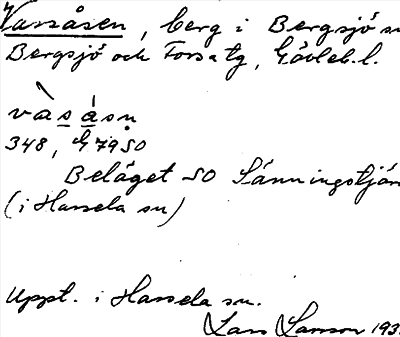 Varsåsen, berg i Bergsjö sn
Bergsjö och Forsa tg, Gävleb. l.
vàsásn
348, G7950
Beläget SO Sänningstjärn
(i Hassela sn)
Uppt. i Hassela sn.
Lars Larsson 193